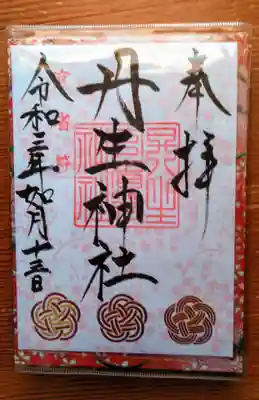 奉拝
丹生神社
令和三年如月十三日